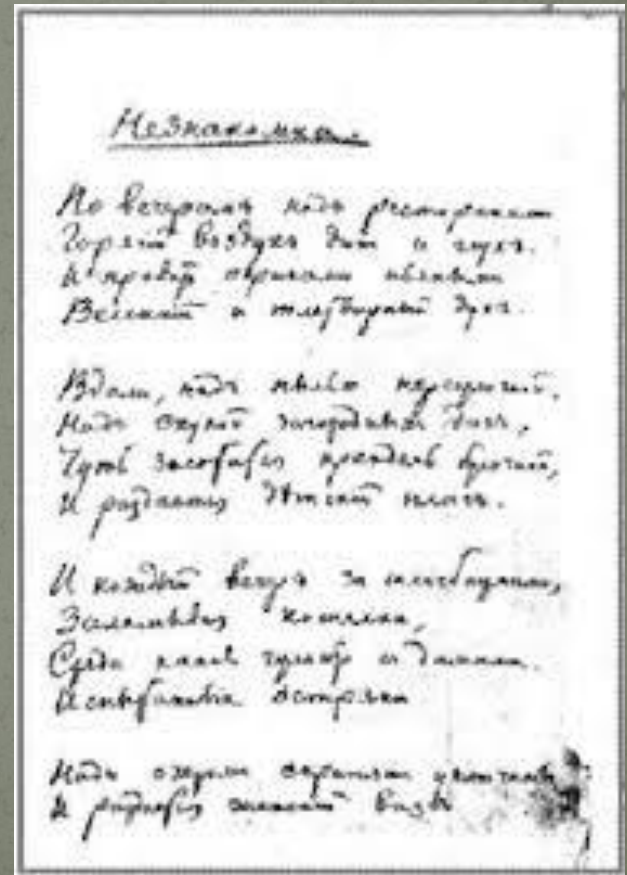 Незнакомка.
По вечерамъ надъ ресторанами
Горячій воздухъ дикъ и глухъ.
И правитъ окриками пьяными
Весенній и тлетворный духъ.
Вдали, надъ пылью переулочной,
Надъ скукой загородныхъ дачъ,
Чуть золотится крендель булочной,
И раздается дѣтскій плачъ.
И каждый вечеръ за шлагбаумами,
Заламывая котелки,
Среди канавъ гуляютъ съ дамами
Испытанные остряки
Надъ уключины
И раздается женскій визгъ